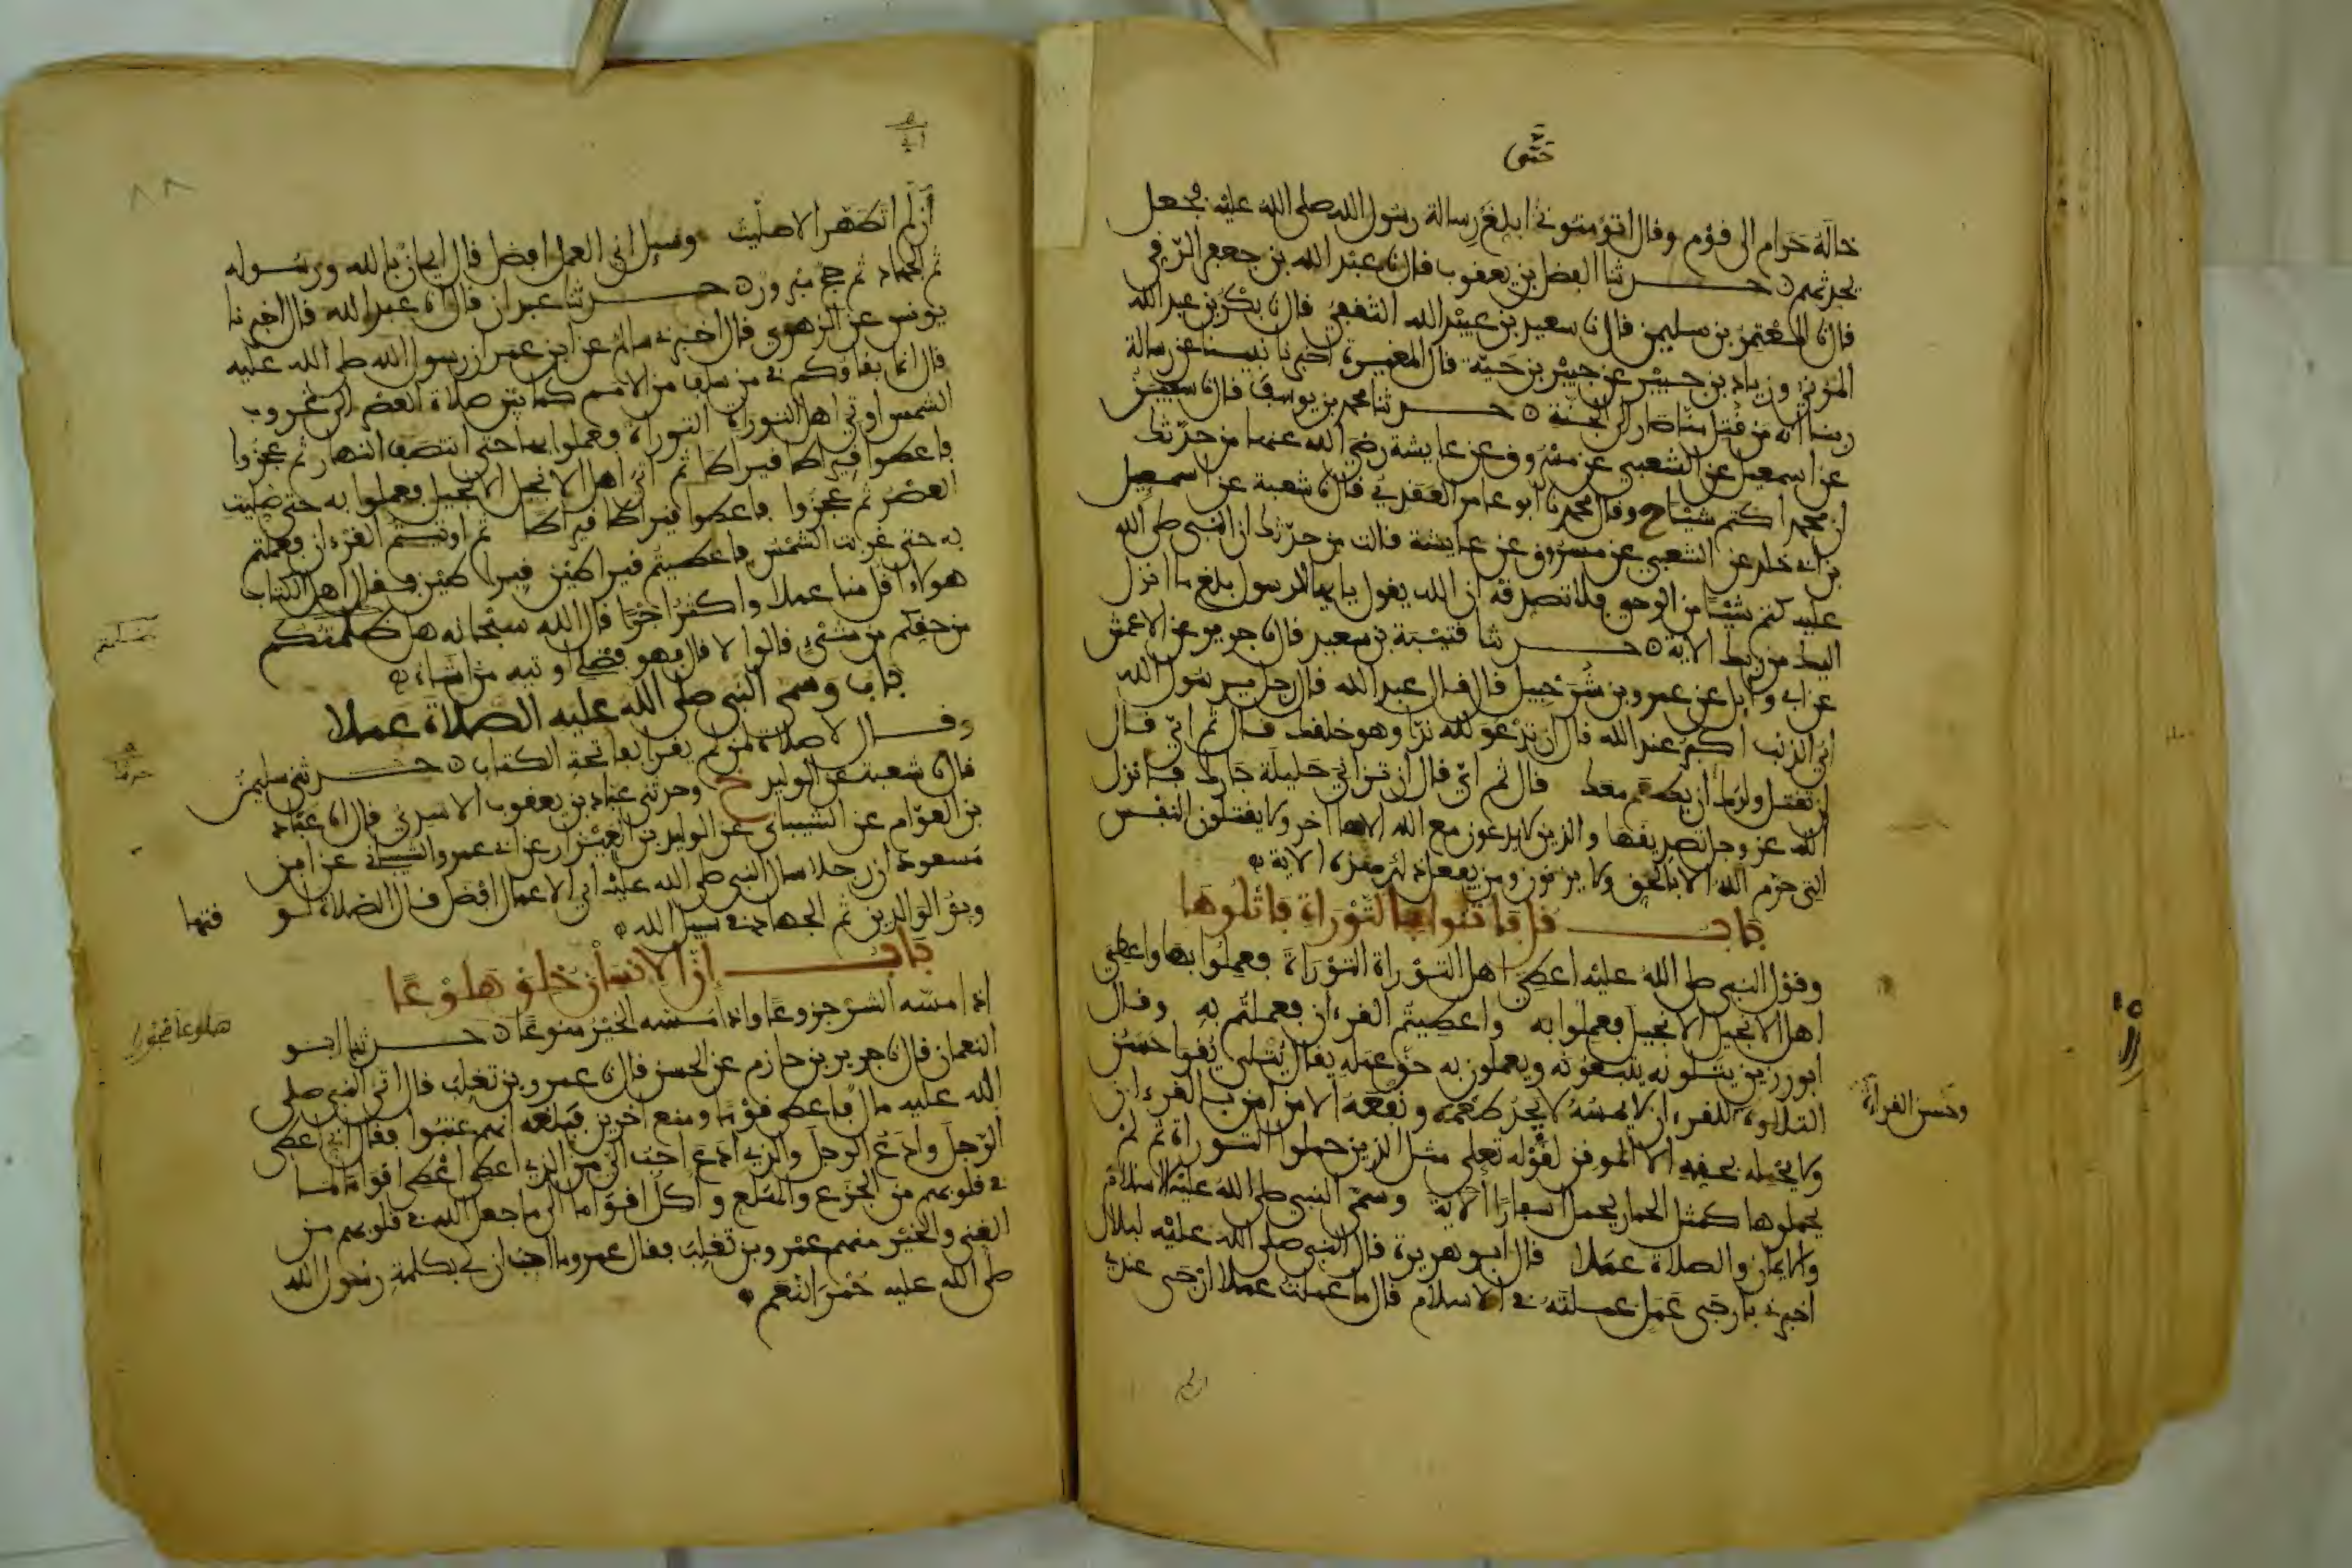 حتى
خاله حرام الى قوم وقال اتؤمنوني ابلغ رسالة رسول الله صلى الله عليه فجعل
يحدثهم ۞ حدثنا الفضل بن يعقوب قال نا عبد الله بن جعفر الرقي
قال نا المعتمر بن سليمن قال نا سعيد بن عبيد الله الثقفي قال نا بكر بن عبد الله
المزني وزياد بن جبير عن جبير بن حية قال المغيرة اخبرنا نبينا عن رسالة
ربنا انه من قتل منا صار الى الجنة ۞ حدثنا محمد بن يوسف قال نا سفين
عن اسمعيل عن الشعبي عن مسروق عن عايشة رضي الله عنها من حدثك
ان محمدا كتم شيئا ح وقال محمد نا ابو عامر العقدي قال نا شعبة عن اسمعيل
بن ابي خلد عن الشعبي عن مسروق عن عايشة قالت من حدثك ان النبي صلى الله
عليه كتم شيئا من الوحي فلا تصدقه ان الله يقول يايها الرسول بلغ ما انزل
اليك من ربك الاية ۞ حدثنا قتيبة بن سعيد قال نا جرير عن الاعمش
عن ابي وايل عن عمرو بن شرحبيل قال قال عبد الله قال رجل يرسول الله
اي الذنب اكبر عند الله قال ان تدعو لله ندا وهو خلقك قال ثم اي قال
ان تقتل ولدك ان يطعم معك قال ثم اي قال ان تزاني حليلة جارك فانزل
الله عز وجل تصديقها والذين لا يدعون مع الله الاها اخر ولا يقتلون النفس
التي حرم الله الا بالحق ولا يزنون ومن يفعل ذلك الاية
باب قل فاتوا بالتوراة فاتلوها
وقول النبي صلى الله عليه اعطي اهل التوراة التوراة فعملوا بها واعطي
اهل الانجيل الانجيل فعملوا به واعطيتم القرءان فعملتم به وقال
ابو رزين يتلونه يتبعونه ويعملون به حق عمله يقال يتلى يقرا حسن
التلاوة للقرءان لا يمسه لا يجد طعمه ونفعه الا من امن بالقرءان
وحسن القراءة
ولا يحمله بحقه الا الموقن لقوله تعلى مثل الذين حملوا التوراة ثم لم
يحملوها كمثل الحمار يحمل اسفارا الاية وسمى النبي صلى الله عليه الاسلام
والايمان والصلاة عملا قال ابو هريرة قال النبي صلى الله عليه لبلال
اخبرني بارجى عمل عملته في الاسلام قال ما عملت عملا ارجى عندي
ان لم
اني لم اتطهر الا صليت وسيل اي العمل افضل قال ايمان بالله ورسوله
ثم الجهاد ثم حج مبرور ۞ حدثنا عبدان قال انا عبد الله قال اخبرنا
يونس عن الزهري قال اخبرني سالم عن ابن عمر ان رسول الله صلى الله عليه
قال انما بقاؤكم في من سلف من الامم كما بين صلاة العصر الى غروب
الشمس اوتي اهل التوراة التوراة فعملوا بها حتى انتصف النهار ثم عجزوا
فاعطوا قيراطا قيراطا ثم اوتي اهل الانجيل الانجيل فعملوا به حتى صليت
العصر ثم عجزوا فاعطوا قيراطا قيراطا ثم اوتيتم القرءان فعملتم
به حتى غربت الشمس فاعطيتم قيراطين قيراطين فقال اهل الكتاب
هولاء اقل منا عملا واكثر اجرا قال الله سبحانه هل ظلمتكم
من حقكم من شيء قالوا لا قال فهو فضلي اوتيه من اشاء
باب وسمى النبي صلى الله عليه الصلاة عملا
وقال لا صلاة لمن لم يقرا بفاتحة الكتاب ۞ حدثني سليمن
قال نا شعبة عن الوليد ح وحدثني عباد بن يعقوب الاسدي قال انا عباد
بن العوام عن الشيباني عن الوليد بن العيزار عن ابي عمرو الشيباني عن ابن
مسعود ان رجلا سال النبي صلى الله عليه اي الاعمال افضل قال الصلاة لو
قتها
وبر الوالدين ثم الجهاد في سبيل الله
باب ان الانسان خلق هلوعا
هلوعا ضجورا
اذا مسه الشر جزوعا واذا مسه الخير منوعا ۞ حدثنا ابو
النعمان قال نا جرير بن حازم عن الحسن قال نا عمرو بن تغلب قال اتى النبي صلى
الله عليه مال فاعطى قوما ومنع اخرين فبلغه انهم عتبوا فقال اني اعطي
الرجل وادع الرجل والذي ادع احب الي من الذي اعطي اعطي اقواما لما
في قلوبهم من الجزع والهلع واكل اقواما الى ما جعل الله في قلوبهم من
الغنى والخير منهم عمرو بن تغلب فقال عمرو ما احب ان لي بكلمة رسول الله
صلى الله عليه حمر النعم